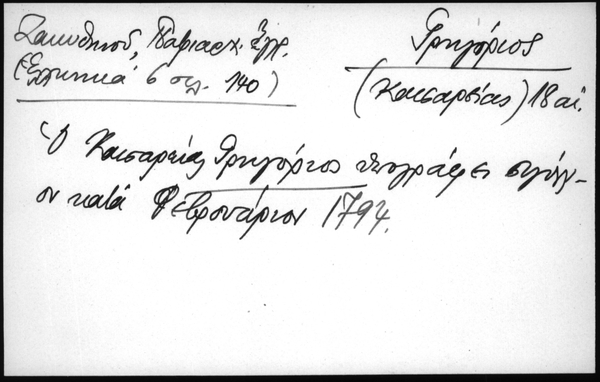 Ζακυθηνοῦ, Πατριαρχ. Ἔγγρ.
(Ἑλληνικά 6 σελ. 140)
Γρηγόριος
(Καισαρείας) 18 αἰ.
Ὁ Καισαρείας Γρηγόριος ὑπογράφει σιγίλλι-
ον κατά Φεβρουάριον 1794.